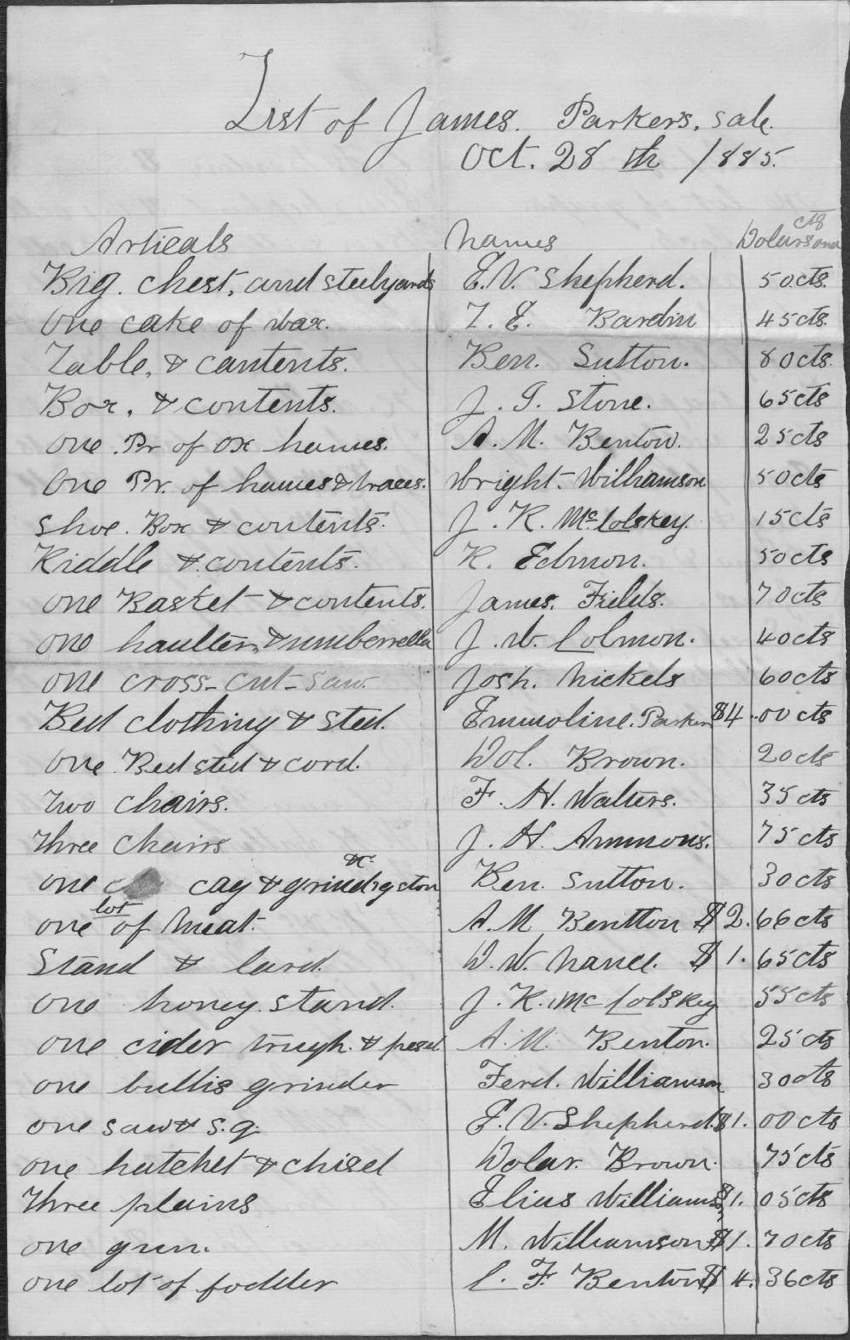 List of James. Parkers, sale.
Oct. 28 th 1885.
Articals names Dolars and cts
Big. chest, and steelyards E. V. Shepherd. 50cts.
one cake of wax. Z. E. Bardin 45cts.
Table, & contents. Ben. Sutton. 80cts.
Box, & contents. J. G. Stone. 65cts
one Pr of ox hames. A. M. Benton. 25cts
One Pr. of hames & traces. Wright Williamson 50cts
Shoe. Box & contents. J. K. McColskey. 15cts
Riddle & contents. R. Edmon. 50cts
one Basket & contents. James. Fields. 70cts
one haulter & umberrella J. W. Colmon. 40cts
one cross-cut-saw. Josh. Nickels 60cts
Bed clothing & sted. Emmoline. Parker $4.00cts
one Bed sted & cord. Dol. Brown. 20cts
Two chairs. F. H. Walters. 35cts
Three chairs J. H. Ammons. 75cts
one cag & grindngston &c Ben. Sutton. 30cts
one lot of meat. A. M. Bentton $2.66cts
Stand & lard. D. W. Nance. $1.65cts
one honey. stand. J. K. McColskey 55cts
one cider trugh. & A. M. Benton. 25cts
one grinder Ferd. Williamson 30cts
one saw & s.q. E. V. Shepherd. $1.00cts
one hatchet & chisel Dolar. Brown. 75cts
Three plains Elias Williams, $1.05cts
one gun. M. Williamson $1.70cts
one lot of fodder C. F. Benton $4.36cts